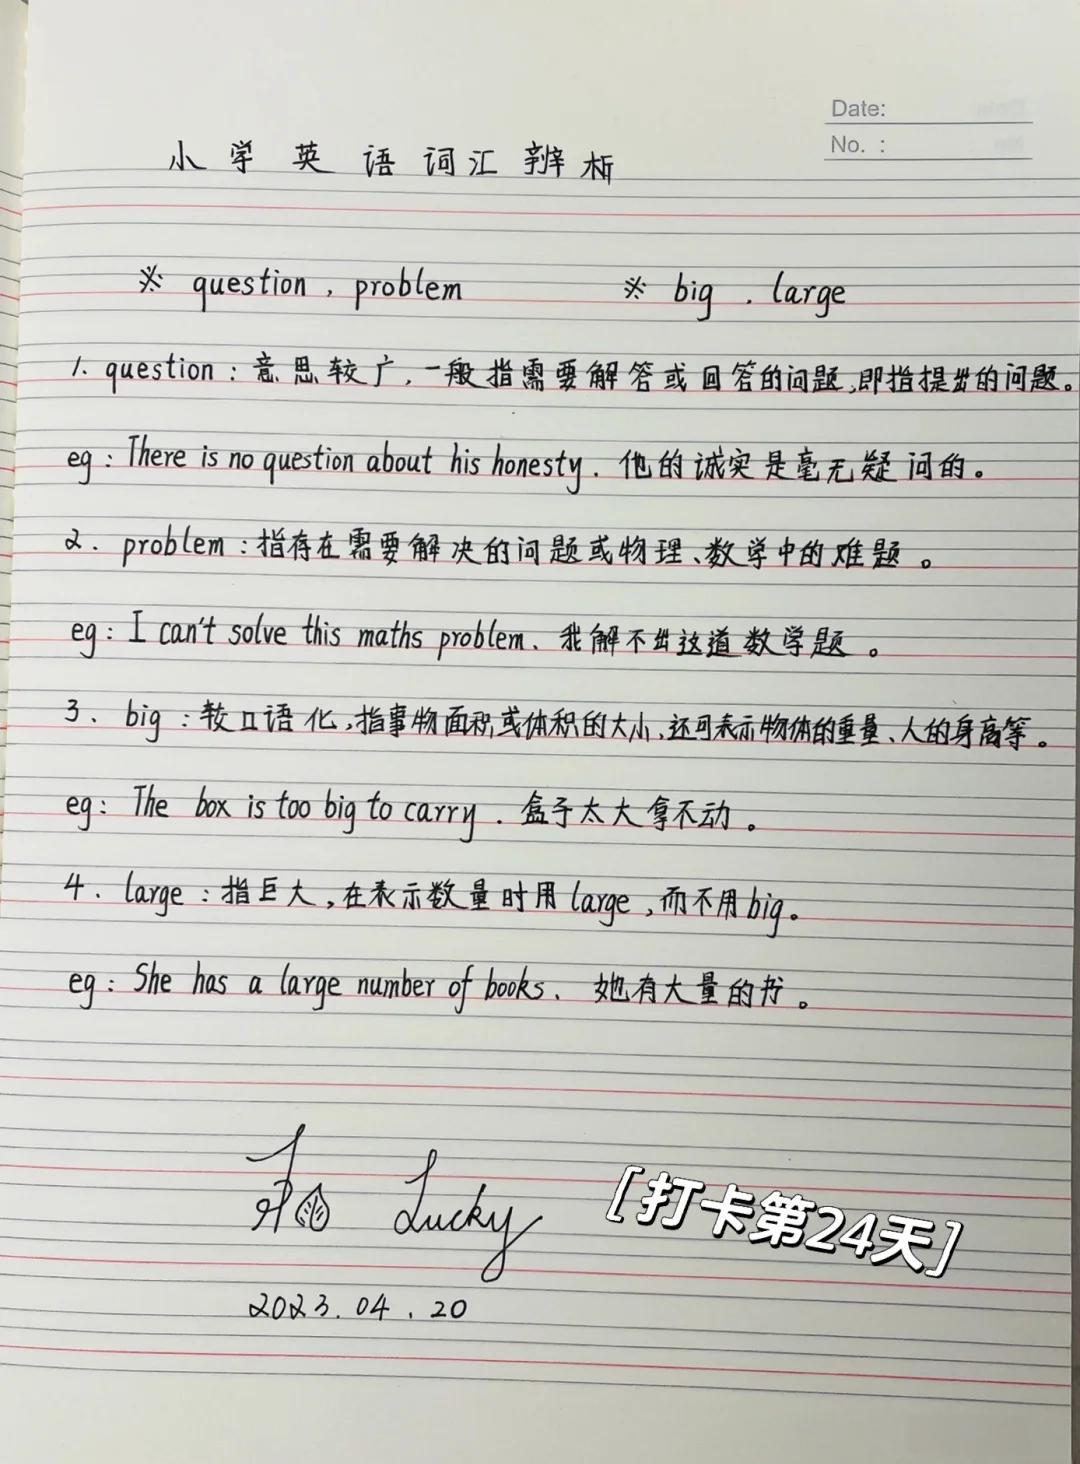 Date:
No. :
小学英语词汇辨析
※ question , problem ※ big . large
1. question : 意思较广, 一般指需要解答或回答的问题,即指提出的问题。
eg : There is no question about his honesty. 他的诚实是毫无疑问的。
2. problem : 指存在需要解决的问题或物理、数学中的难题。
eg : I can't solve this maths problem. 我解不出这道数学题。
3. big : 较口语化,指事物面积或体积的大小,还可表示物体的重量、人的身高等。
eg : The box is too big to carry. 盒子太大拿不动。
4. large : 指巨大,在表示数量时用large,而不用big。
eg : She has a large number of books. 她有大量的书。
Lucky
2023.04.20
「打卡第24天」